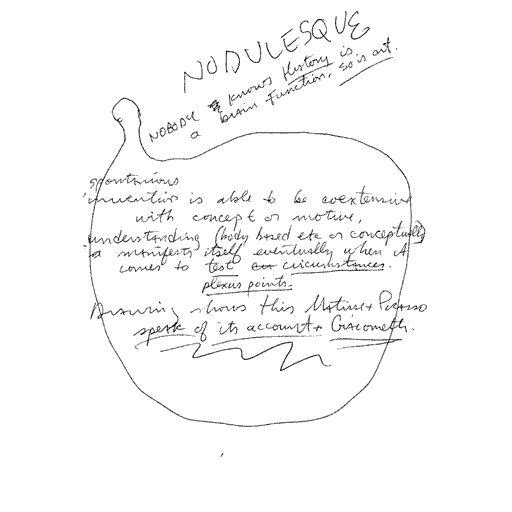 NODULESQUE
NOBODY knows History is
a brain Function. So is art.
spontanious
invention is able to be coextensive
with concept or motive,
understanding (body based etc or conceptually)
a manifests itself eventually when it
comes to test circumstances.
plexus points.
Drawing shows this Matisse + Picasso
speak of its account + Giacometti.